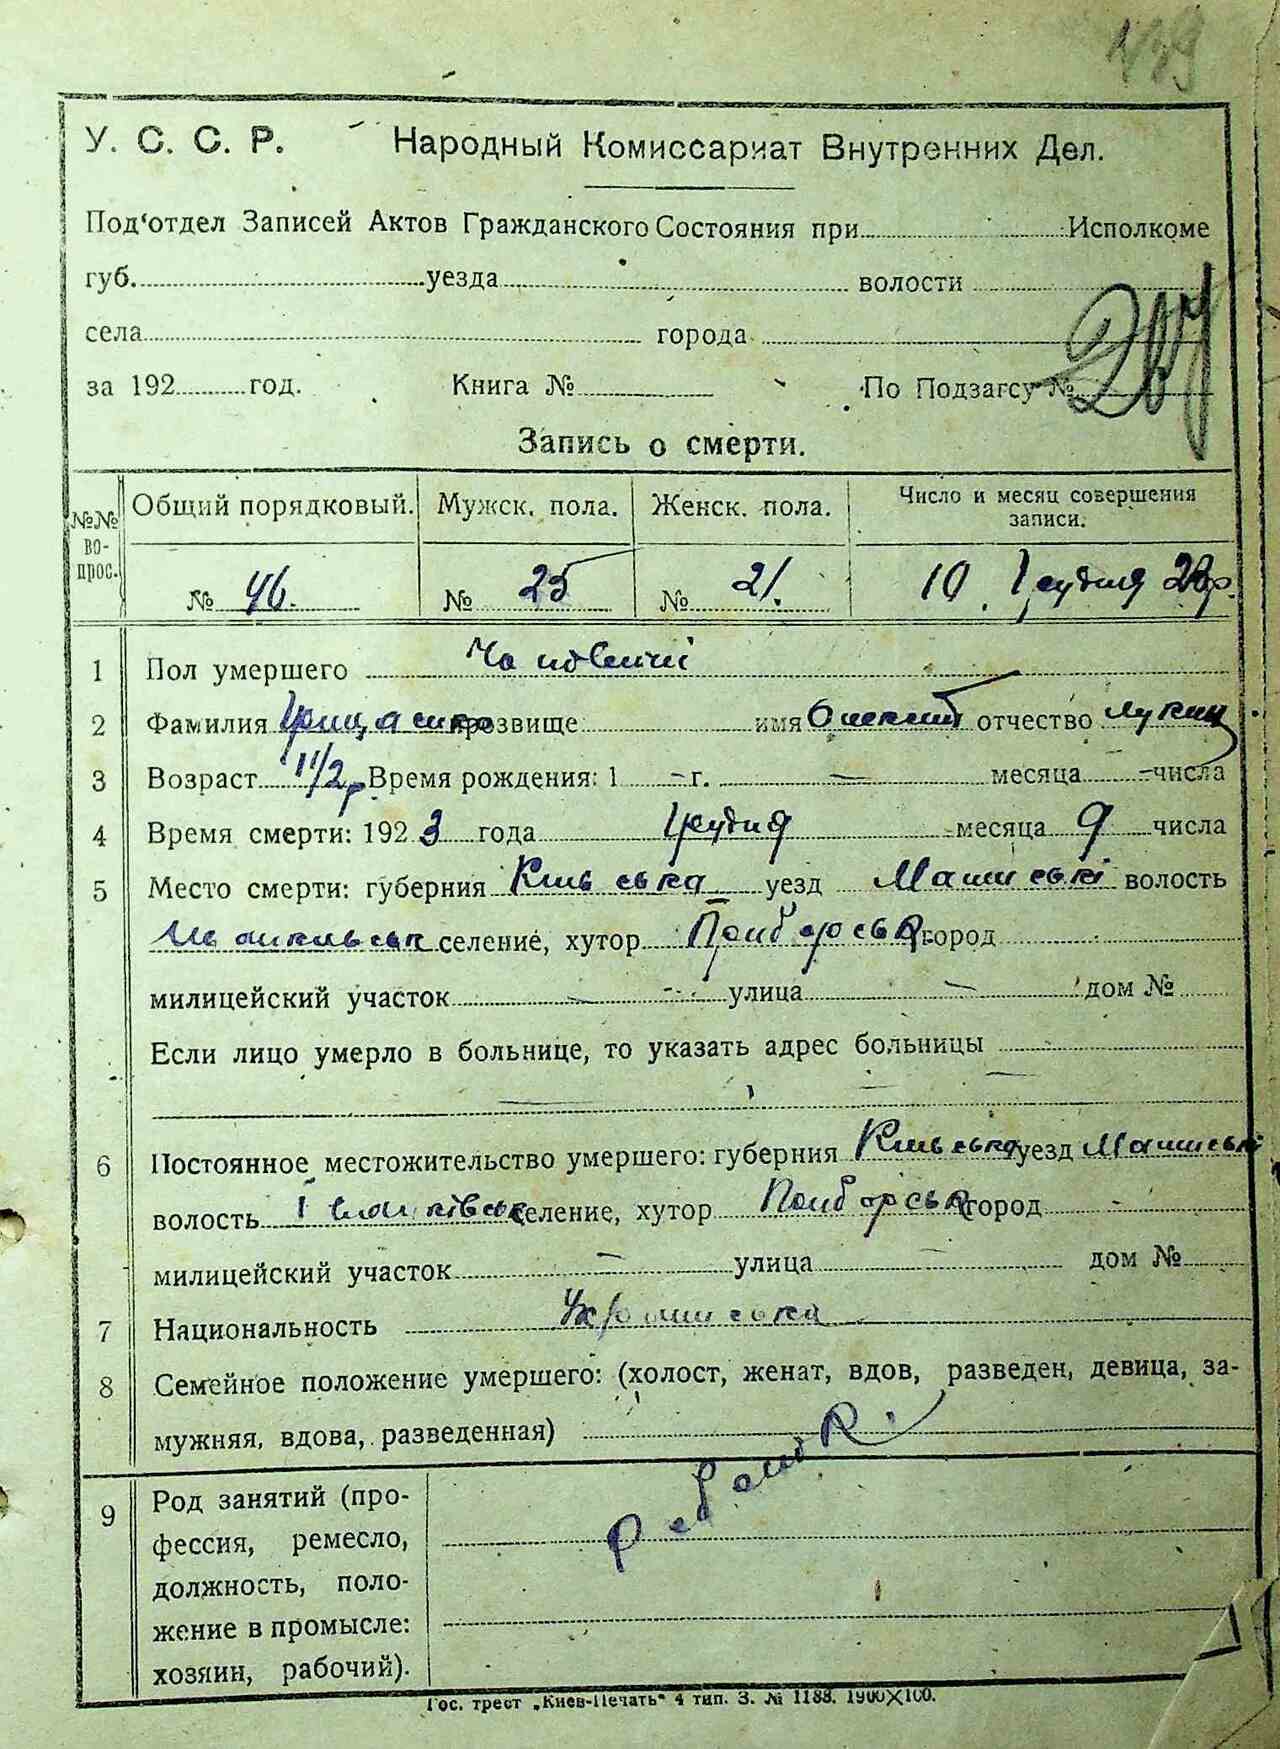 У. С. С. Р. Народный Комиссариат Внутренних Дел.
Под‘отдел Записей Актов Гражданского Состояния при Исполкоме
губ. уезда волости
села города
за 192 год. Книга № По Подзагсу №
Запись о смерти.
№№ вопрос. Общий порядковый. Мужск. пола. Женск. пола. Число и месяц совершения записи.
№ 46. № 25 № 21. 10 Грудня 23р.
1 Пол умершего Чоловічий
2 Фамилия прозвище имя Олексій отчество
3 Возраст 1 1/2 р Время рождения: 1 - г. — месяца - числа
4 Время смерти: 1923 года Грудня месяца 9 числа
5 Место смерти: губерния Київська уезд волость
селение, хутор город
милицейский участок — улица — дом №
Если лицо умерло в больнице, то указать адрес больницы
6 Постоянное местожительство умершего: губерния Київська уезд
волость Іванківськ селение, хутор город
милицейский участок — улица — дом №
7 Национальность Українська
8 Семейное положение умершего: (холост, женат, вдов, разведен, девица, за-
мужняя, вдова, разведенная)
ребенок.
9 Род занятий (про-
фессия, ремесло,
должность, поло-
жение в промысле:
хозяин, рабочий).
Гос. трест „Киев-Печать“ 4 тип. З. № 1188. 1900X100.